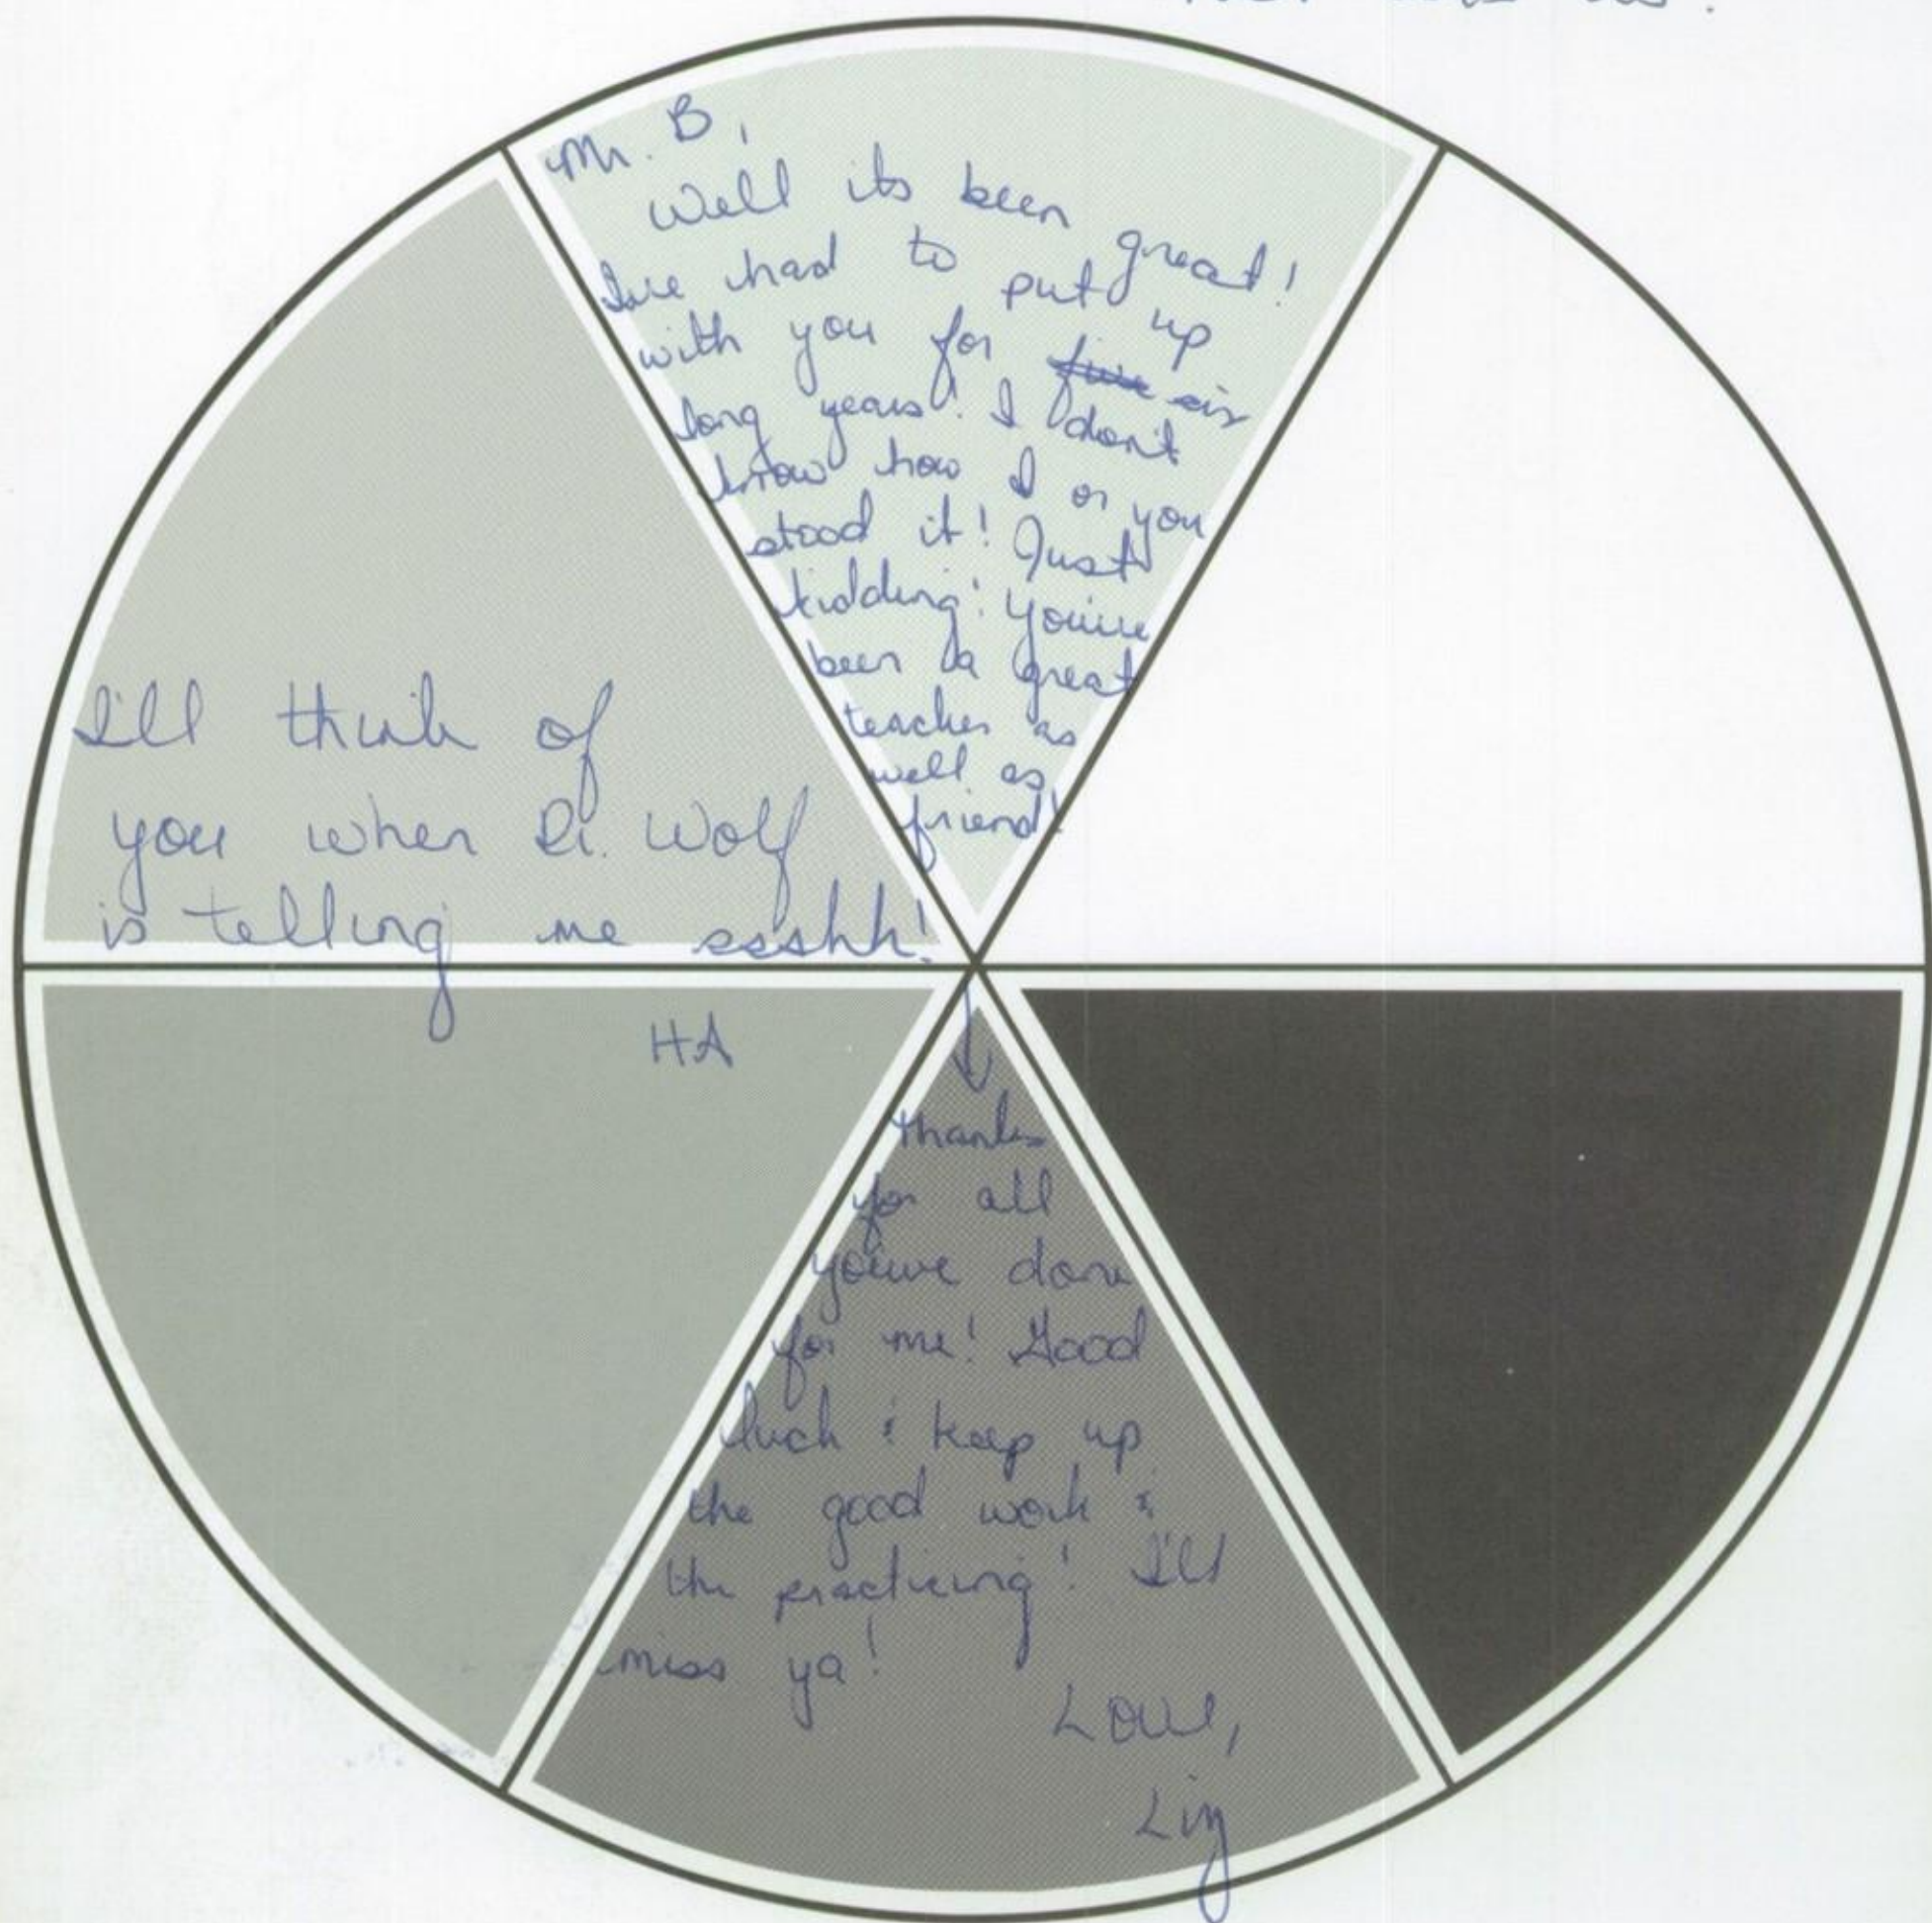 Mr. B,
Well its been great!
Ive had to put up
with you for five six
long years! I don't
know how I or you
stood it! Just
kidding! You've
been a great
teacher as
well as
friend!
I'll think of
you when Dr. Wolf
is telling me ssshh!
HA
Thanks
for all
you've done
for me! Good
luck & keep up
the good work &
the practicing! I'll
miss ya!
Love,
Liz